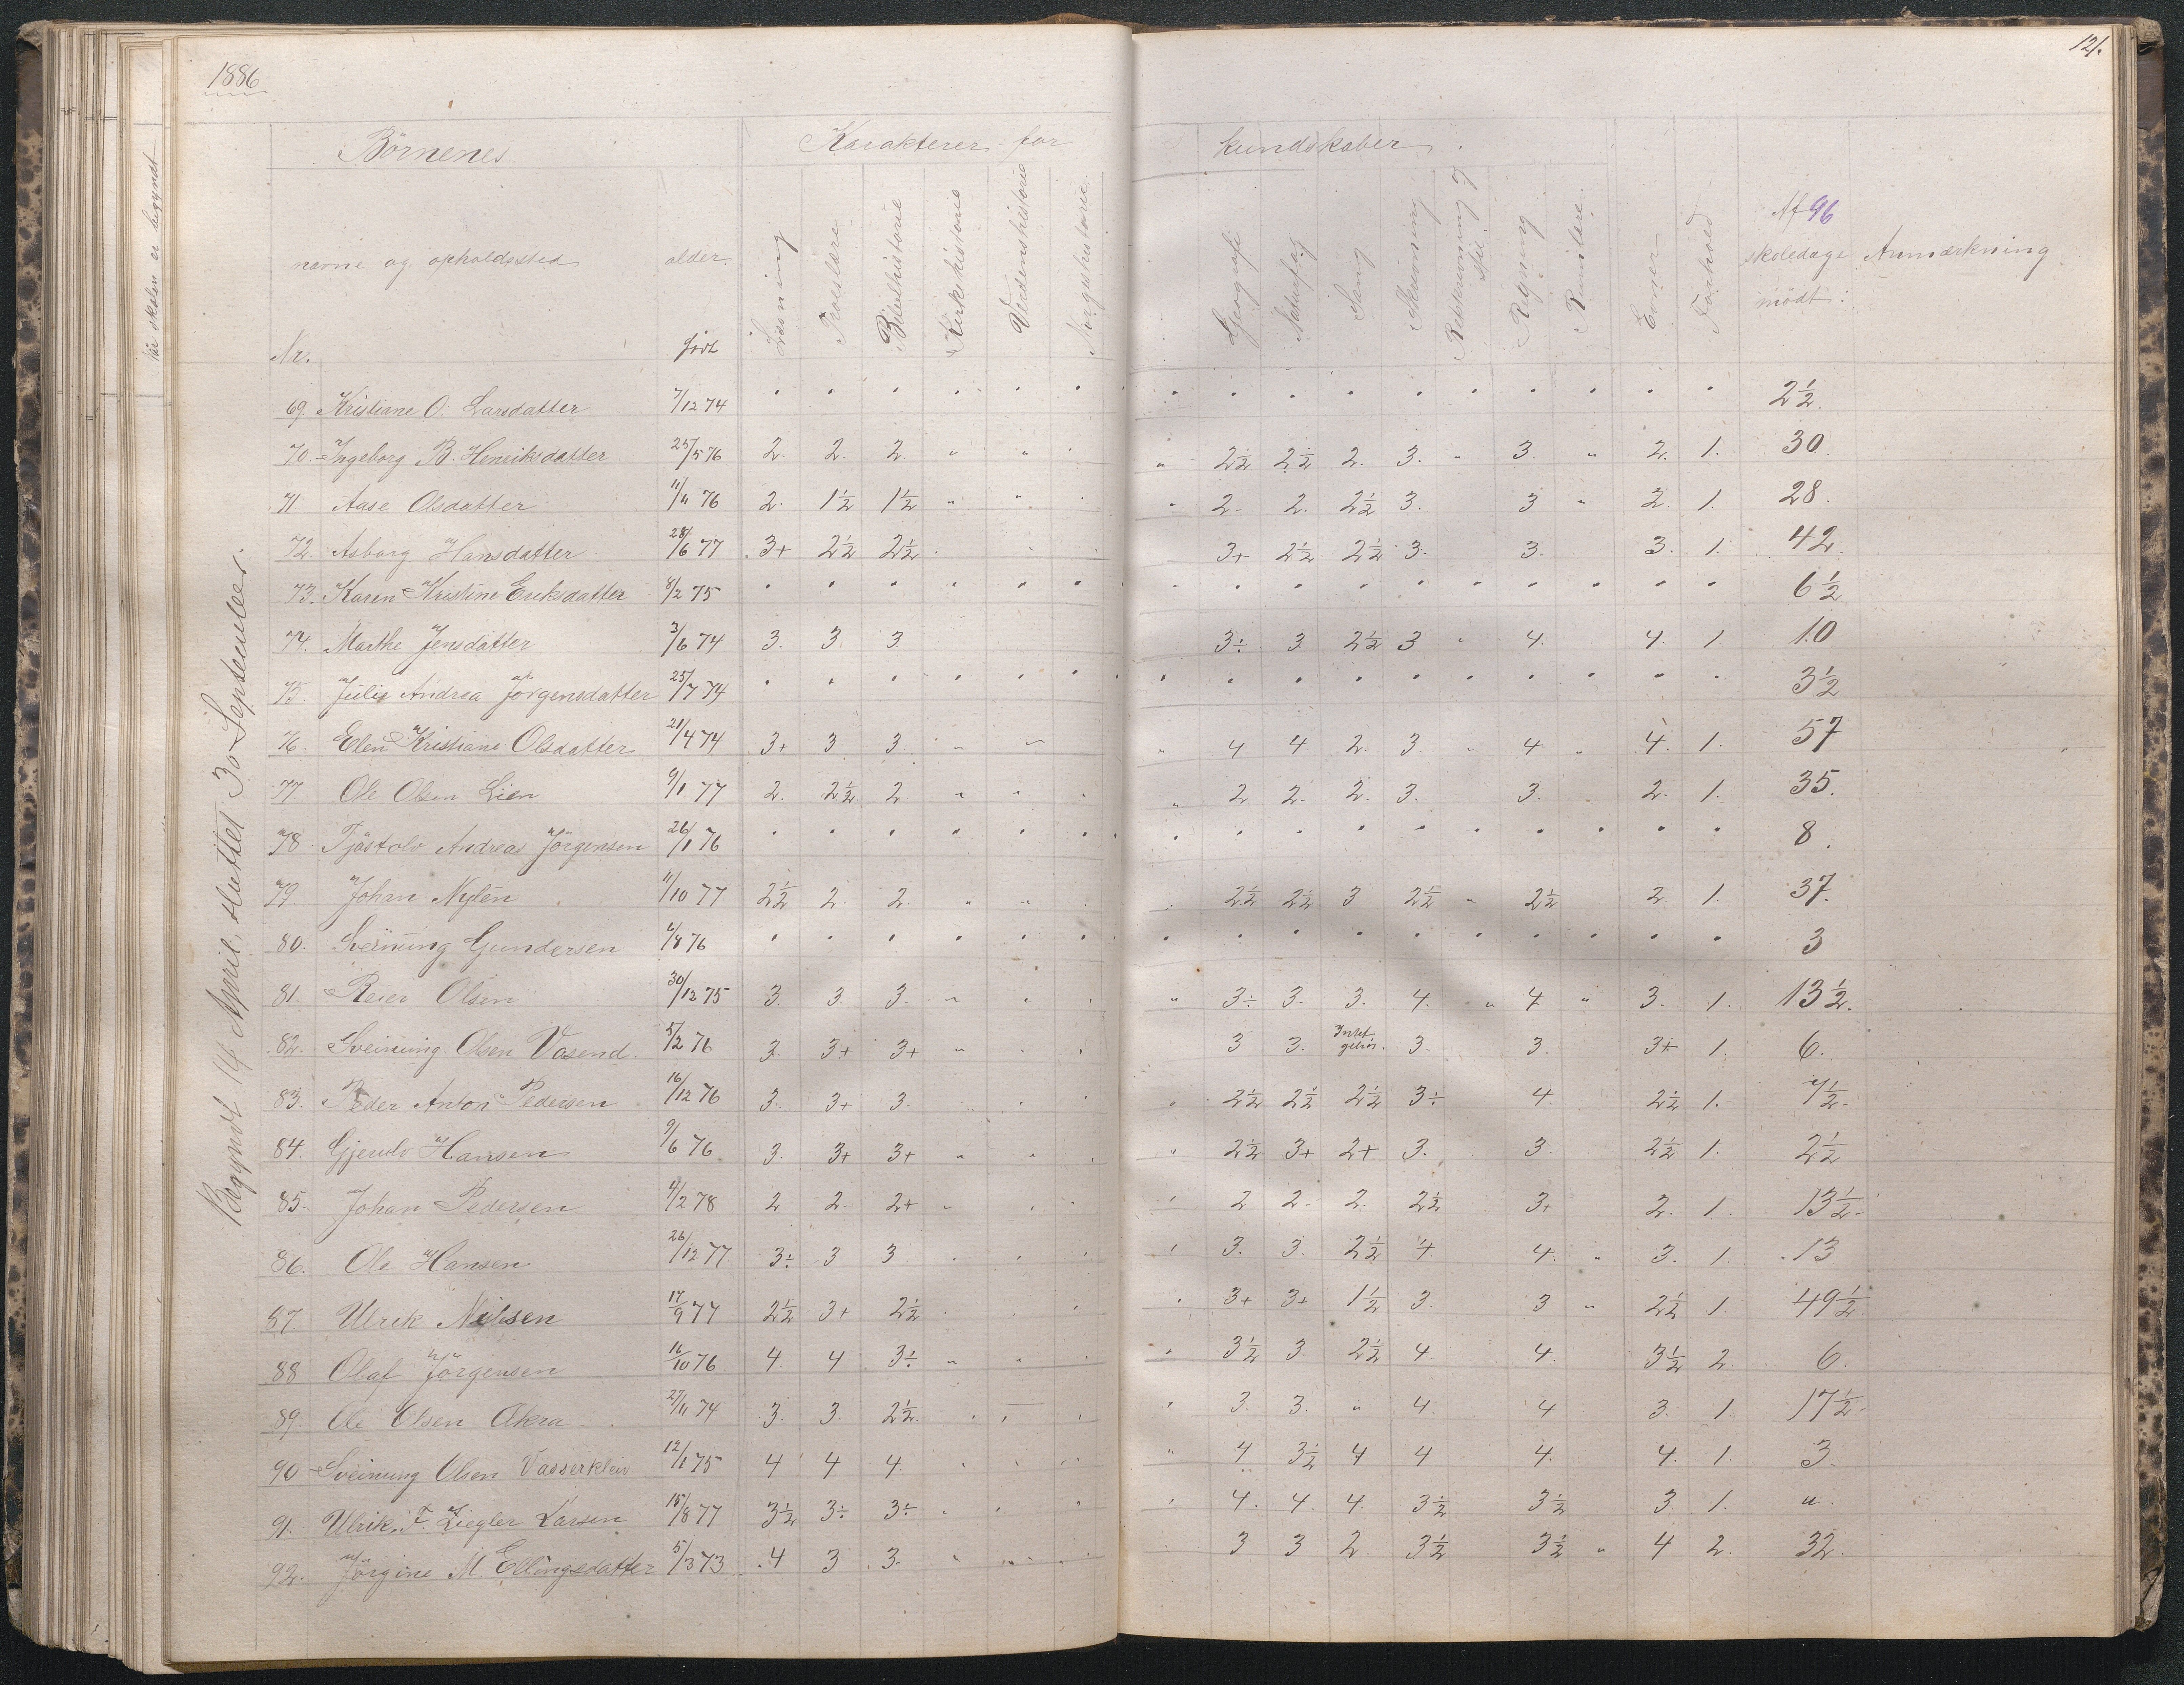 1886
12
når skolen er begyndt
Begyndt 14 April, sluttet 30 September.
Börnenes
Karakterer for
kundskaber.
Nr.
navne og opholdssted
alder.
födt
Læsning
Troeslære
Bibelhistorie
Kirkehistorie
Verdenshistorie
Norgeshistorie
Geografi
Naturfag
Sang
Skrivning
Retskrivning og stil.
Regning
Rumlære.
Evner
Forhold
Af 96 skoledage mödt:
Anmærkning
69. Kristiane O. Larsdatter 7/12 74 " " " " " " " " " " " " " " " " 2½.
70. Ingeborg B. Henriksdatter 25/5 76 2. 2. 2. " " " " 2½ 2½ 2. 3. " 3. " 2. 1. 30
71 Aase Olsdatter 11/11 76 2. 1½ 1½ " " " " 2. 2. 2½ 3. 3 " 2. 1. 28.
72. Asborg Hansdatter 28/6 77 3+ 2½ 2½ 3+ 2½ 2½ 3. 3. 3. 1. 42.
73. Karen Kristine Eriksdatter 8/2 75 " " " " " " " " " " " " " " " " 6½
74. Marthe Jensdatter 3/6 74 3. 3. 3. 3÷ 3 2½ 3 " 4. 4. 1. 10
75. Julie Andrea Jörgensdatter 25/7 74 " " " " " " " " " " " " " " " " 3½
76. Elen Kristiane Olsdatter 21/4 74 3+ 3 3. " " " 4 4. 2. 3. " 4 " 4. 1. 57
77. Ole Olsen Lien 9/1 77 2. 2½ 2. " " " " 2 2. 2. 3. 3. 2. 1. 35.
78. Tjöstolv Andreas Jörgensen 26/1 76 " " " " " " " " " " " " " " " " 8.
79. Johan Nylén 11/10 77 2½ 2. 2. " " 2½ 2½ 3 2½ " 2½ 2. 1. 37.
80. Sveinung Gundersen /8 76 " " " " " " " " " " " " " " " " 3
81. Reier Olsen 30/12 75 3. 3. 3. " " " " 3÷ 3. 3. 4. " 4. " 3. 1. 13½.
82. Sveinung Olsen Vasend. 5/2 76 3. 3+ 3+ " 3 3. Intet gehör. 3. 3. 3+ 1. 6.
83. Peder Anton Pedersen 16/12 76 3. 3+ 3. 2½ 2½ 2½ 3÷ 4. 2½ 1. 7½.
84. Gjerulv Hansen 9/6 76 3. 3+ 3+ " " " 2½ 3+ 2+ 3. 3. 2½ 1. 2½
85. Johan Pedersen 4/2 78 2 2. 2+ " 2 2. 2. 2½ 3+ 2. 1. 13½.
86. Ole Hansen 26/12 77. 3÷ 3 3. 3. 3. 2½ 4. 4. " 3. 1. 13
87. Ulrik Nilsen 17/9 77 2½ 3+ 2½ 3+ 3+ 1½ 3. 3 " 2½ 1. 49½.
88 Olaf Jörgensen 16/10 76 4. 4 3÷ " " " 3½ 3. 2½ 4. 4. 3½ 2. 6.
89. Ole Olsen Åkra 27/11 74 3. 3. 2½. 3. 3. " 4. 4 3. 1. 17½.
90 Sveinung Olsen Vasserkleiv 12/1 75 4 4 4. " 4 3½ 4 4 4. 4. 1. 3.
91. Ulrik F. Ziegler Larsen 15/8 77 3½ 3÷ 3÷ 4. 4. 4. 3½ 3½ 3. 1. ".
92. Jörgine M. Ellingsdatter 5/3 73 4 3 3. " 3 3 2. 3½ 3½ " 4 2. 32.